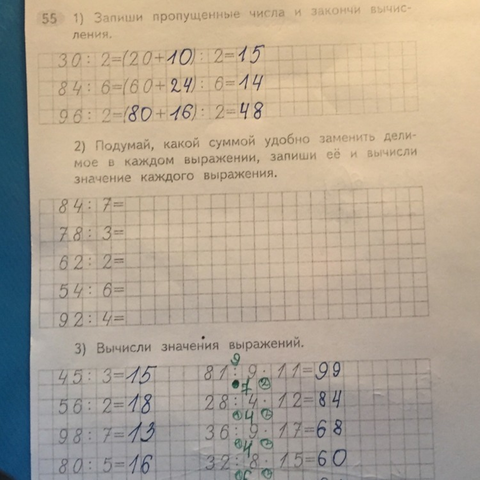 55 1) Запиши пропущенные числа и закончи вычис-
ления.
30 : 2=(20+10) : 2=15
84 : 6=(60+24) : 6=14
96 : 2=(80+16) : 2=48
2) Подумай, какой суммой удобно заменить дели-
мое в каждом выражении, запиши её и вычисли
значение каждого выражения.
84 : 7=
78 : 3=
62 : 2=
54 : 6=
92 : 4=
3) Вычисли значения выражений.
9
45 : 3=15 81 : 9 · 11=99
7 2
56 : 2=18 28 : 4 · 12=84
4
98 : 7=13 36 : 9 · 17=68
4
80 : 5=16 32 : 8 · 15=60